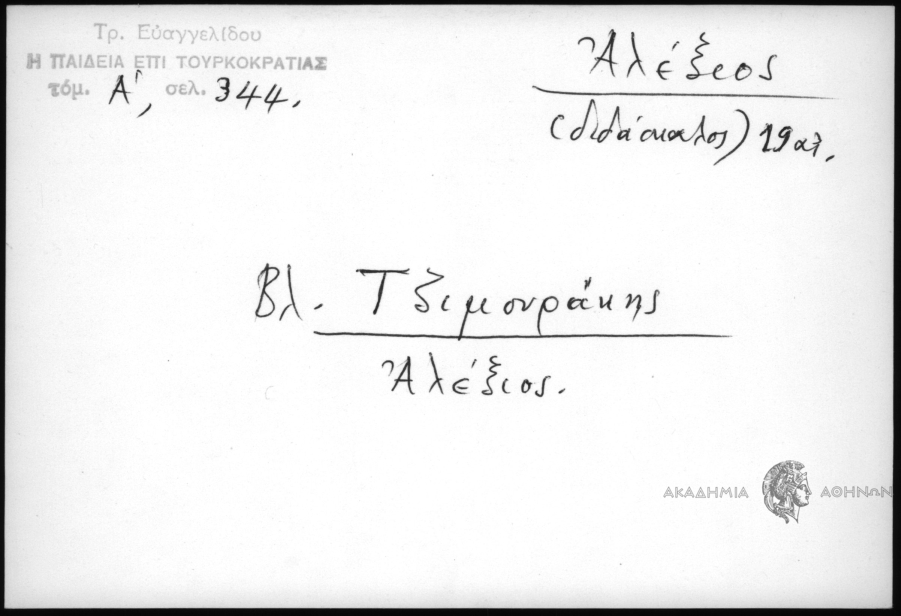 Τρ. Εὐαγγελίδου
Η ΠΑΙΔΕΙΑ ΕΠΙ ΤΟΥΡΚΟΚΡΑΤΙΑΣ
τόμ. Α', σελ. 344.
Ἀλέξιος
(διδάσκαλος) 19 αἰ.
Βλ. Τζιμουράκης
Ἀλέξιος.
ΑΚΑΔΗΜΙΑ ΑΘΗΝΩΝ